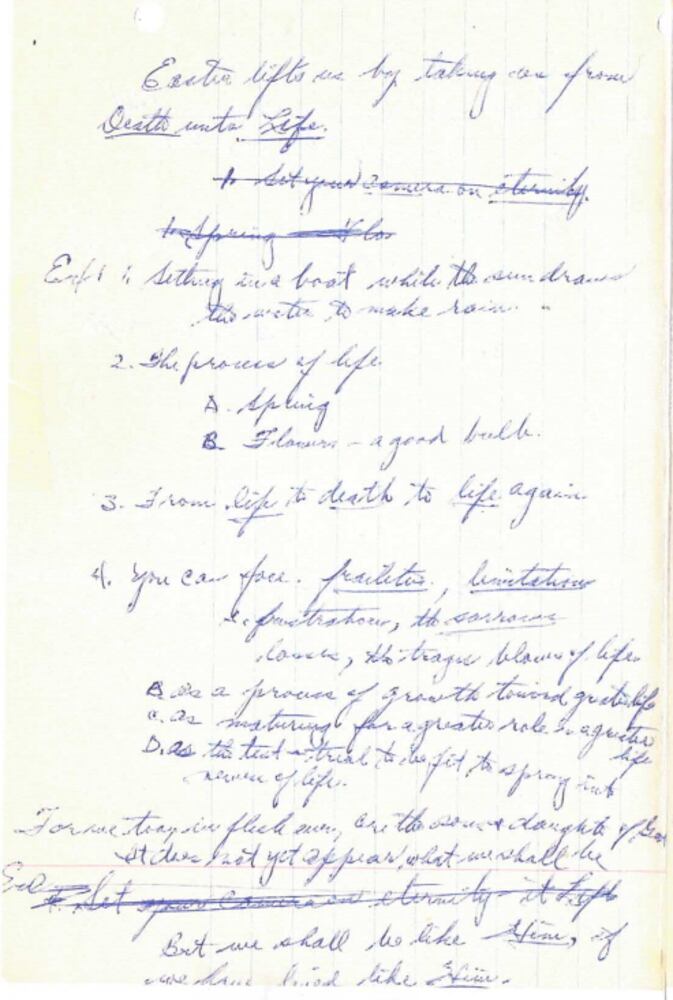 Easter lifts us by taking us from
Death unto Life.
1. Set your camera on eternity.
1. Spring Flo
1. Setting in a boat while the sun draws
the water to make rain.
2. The process of life
A. Spring
B. Flowers - a good bulb.
3. From life to death to life again
4. You can face frailities, limitations
frustrations, the sorrows
losses, the tragic blows of life
B. as a process of growth toward greater life
C. as maturing for a greater role in a greater
life
D. as the test - trial to be fit to spring into
of life.
For we today in flesh now, are the sons & daughters of God
It does not yet appear what we shall be
Set your camera on eternity - it
But we shall be like Him, if
we have lived like Him.